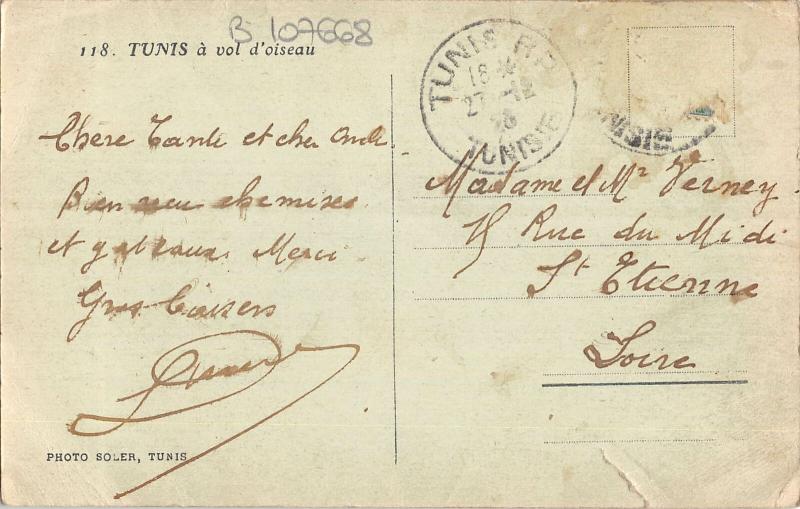 B 107668
118. TUNIS à vol d'oiseau
TUNIS R.P.
18
27
TUNISIE
Chère Tante et cher Oncle
Bien reçu chemises
et gateaux. Merci
Gros baisers
Madame et Mr Verney
Rue du Midi
St Etienne
Loire
PHOTO SOLER, TUNIS